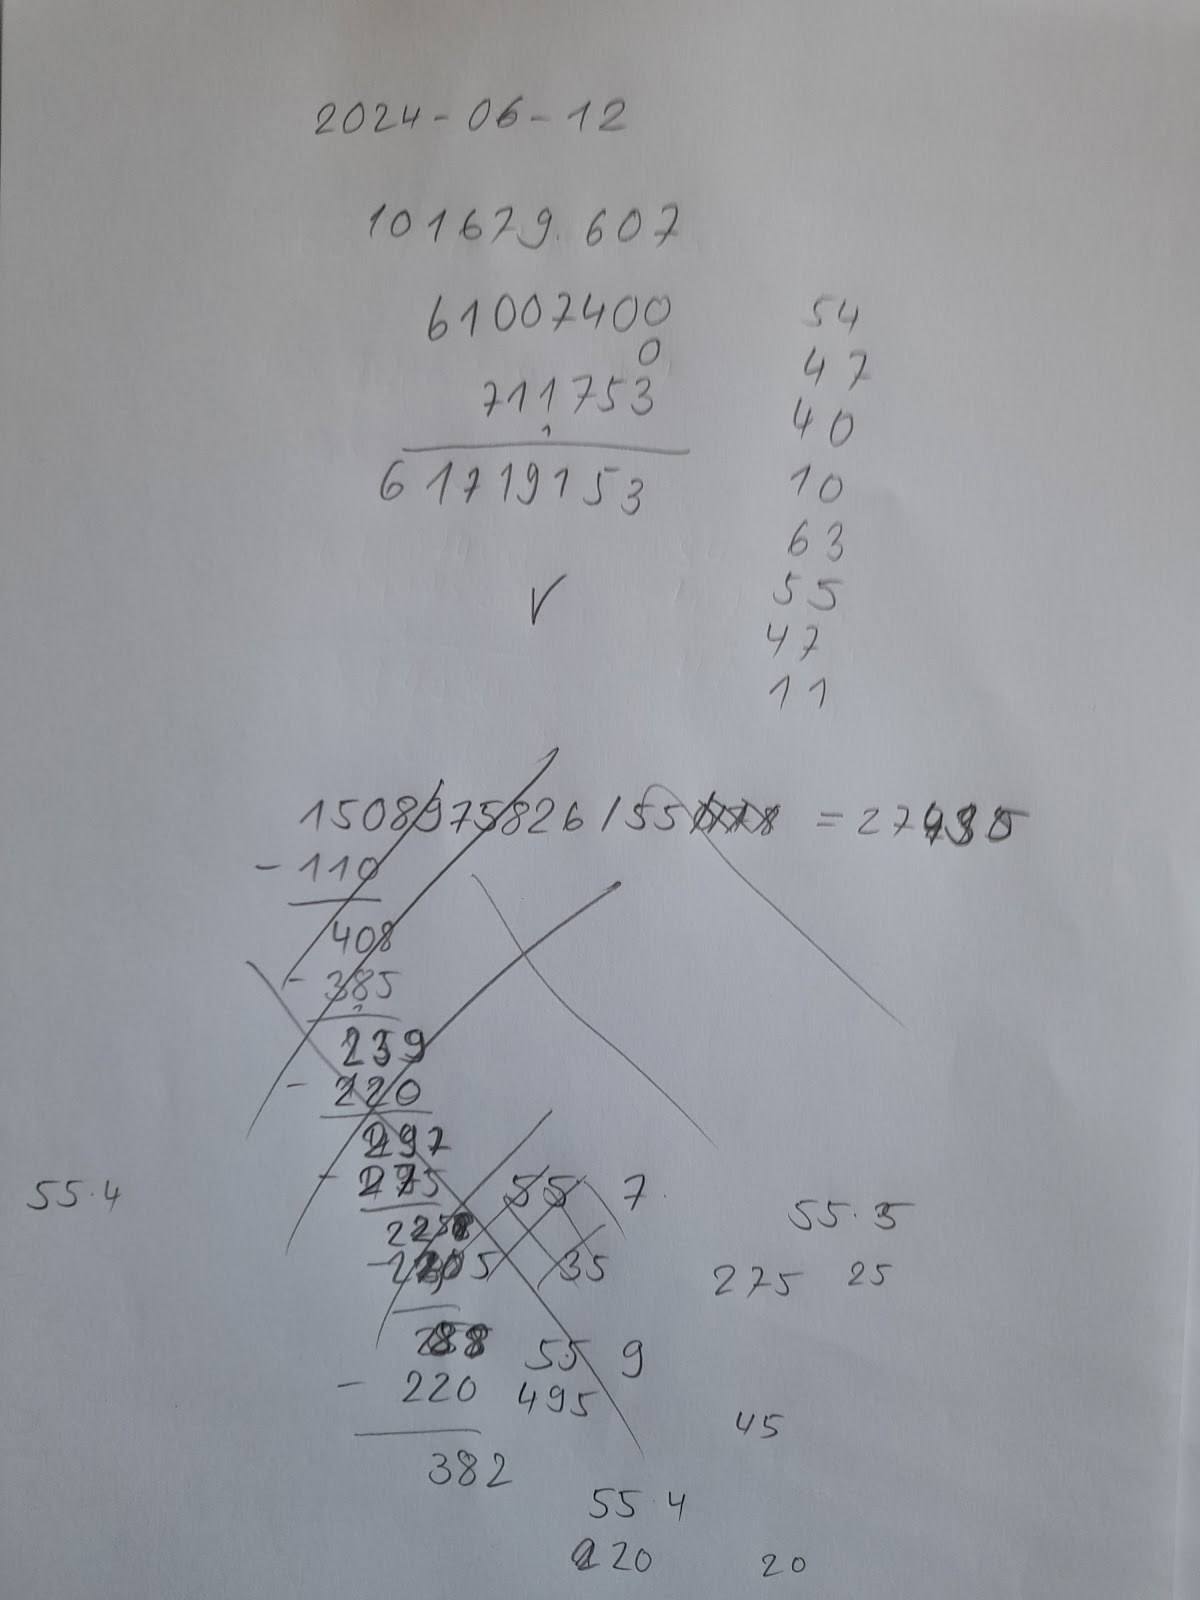 2024-06-12
101679.607
61007400
0
711753
1
61719153
54
47
40
10
63
55
47
11
1508975826/55 = 27
-110
408
-385
1
239
-220
297
-275
55 7
55.4
55.5
35
275 25
288
55 9
-220
495
45
382
55.4
220 20